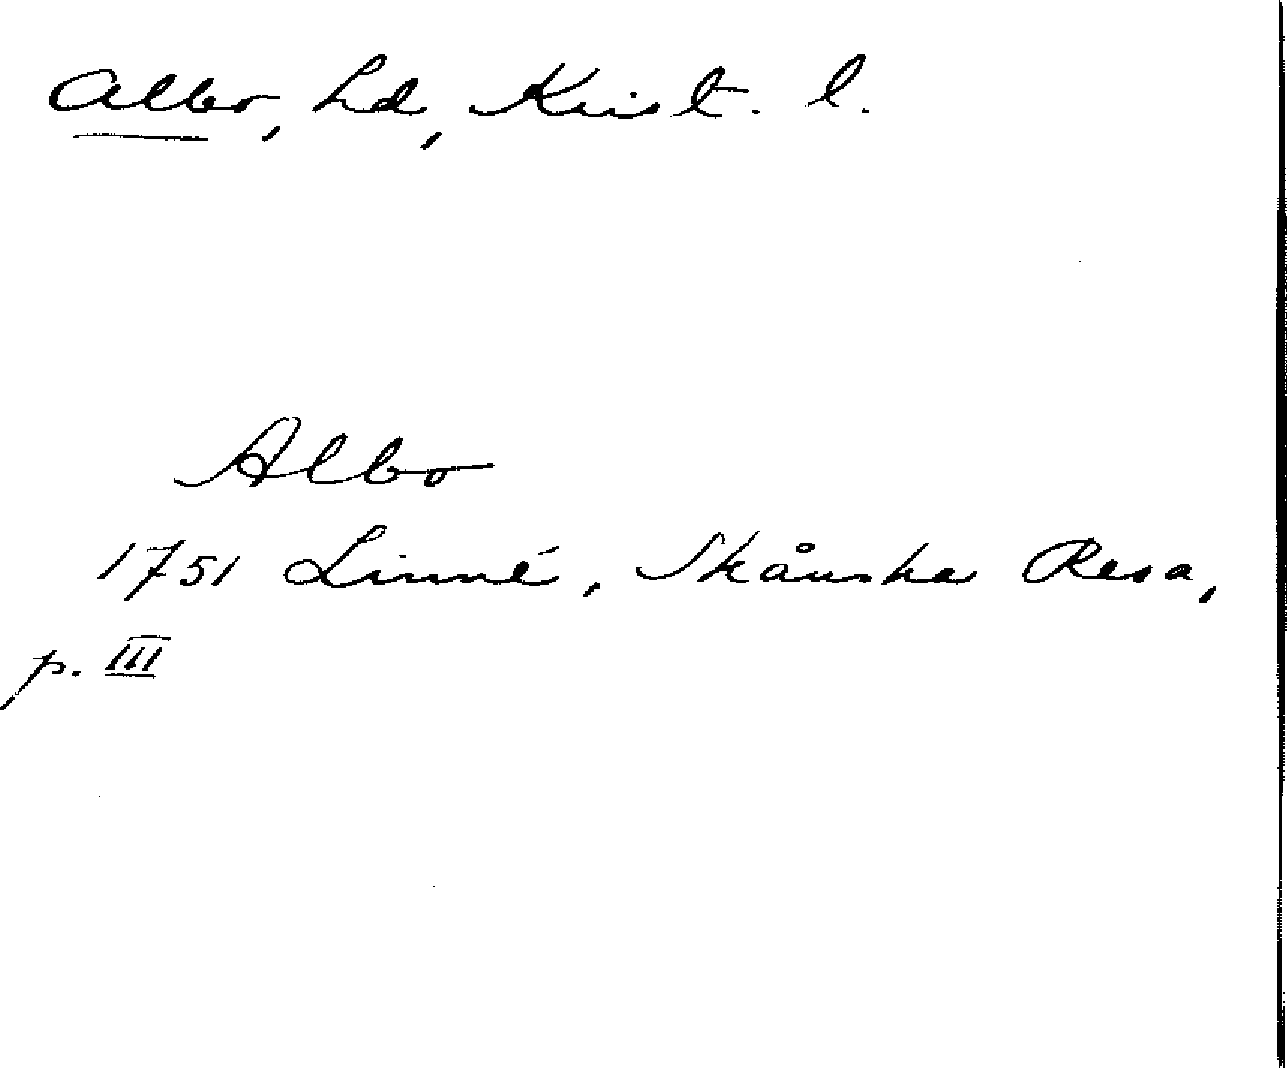 Albo, hd, Krist. l.
Albo
1751 Linné, Skånska Resa,
p. III